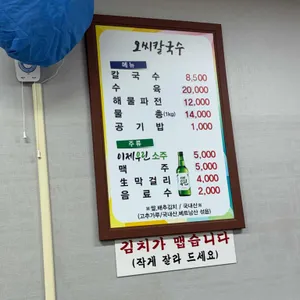 오씨칼국수
메뉴
칼국수 8,500
수육 20,000
해물파전 12,000
물총(1kg) 14,000
공기밥 1,000
주류
이제우린 소주 5,000
맥주 5,000
생막걸리 4,000
음료수 2,000
※쌀,배추김치 / 국내산※
(고추가루/국내산,베트남산 섞음)
김치가 맵습니다
(작게 잘라 드세요)